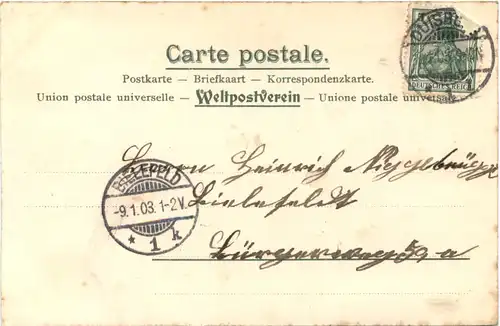 DUISBU
DEUTSCHES REICH
Carte postale.
Postkarte — Briefkaart — Korrespondenzkarte.
Union postale universelle — Weltpostverein — Unione postale universale
Herrn Heinrich
BIELEFELD
-9.1.03. 1-2V.
* 1 k
Bielefeldt
Bürgerweg 59 a